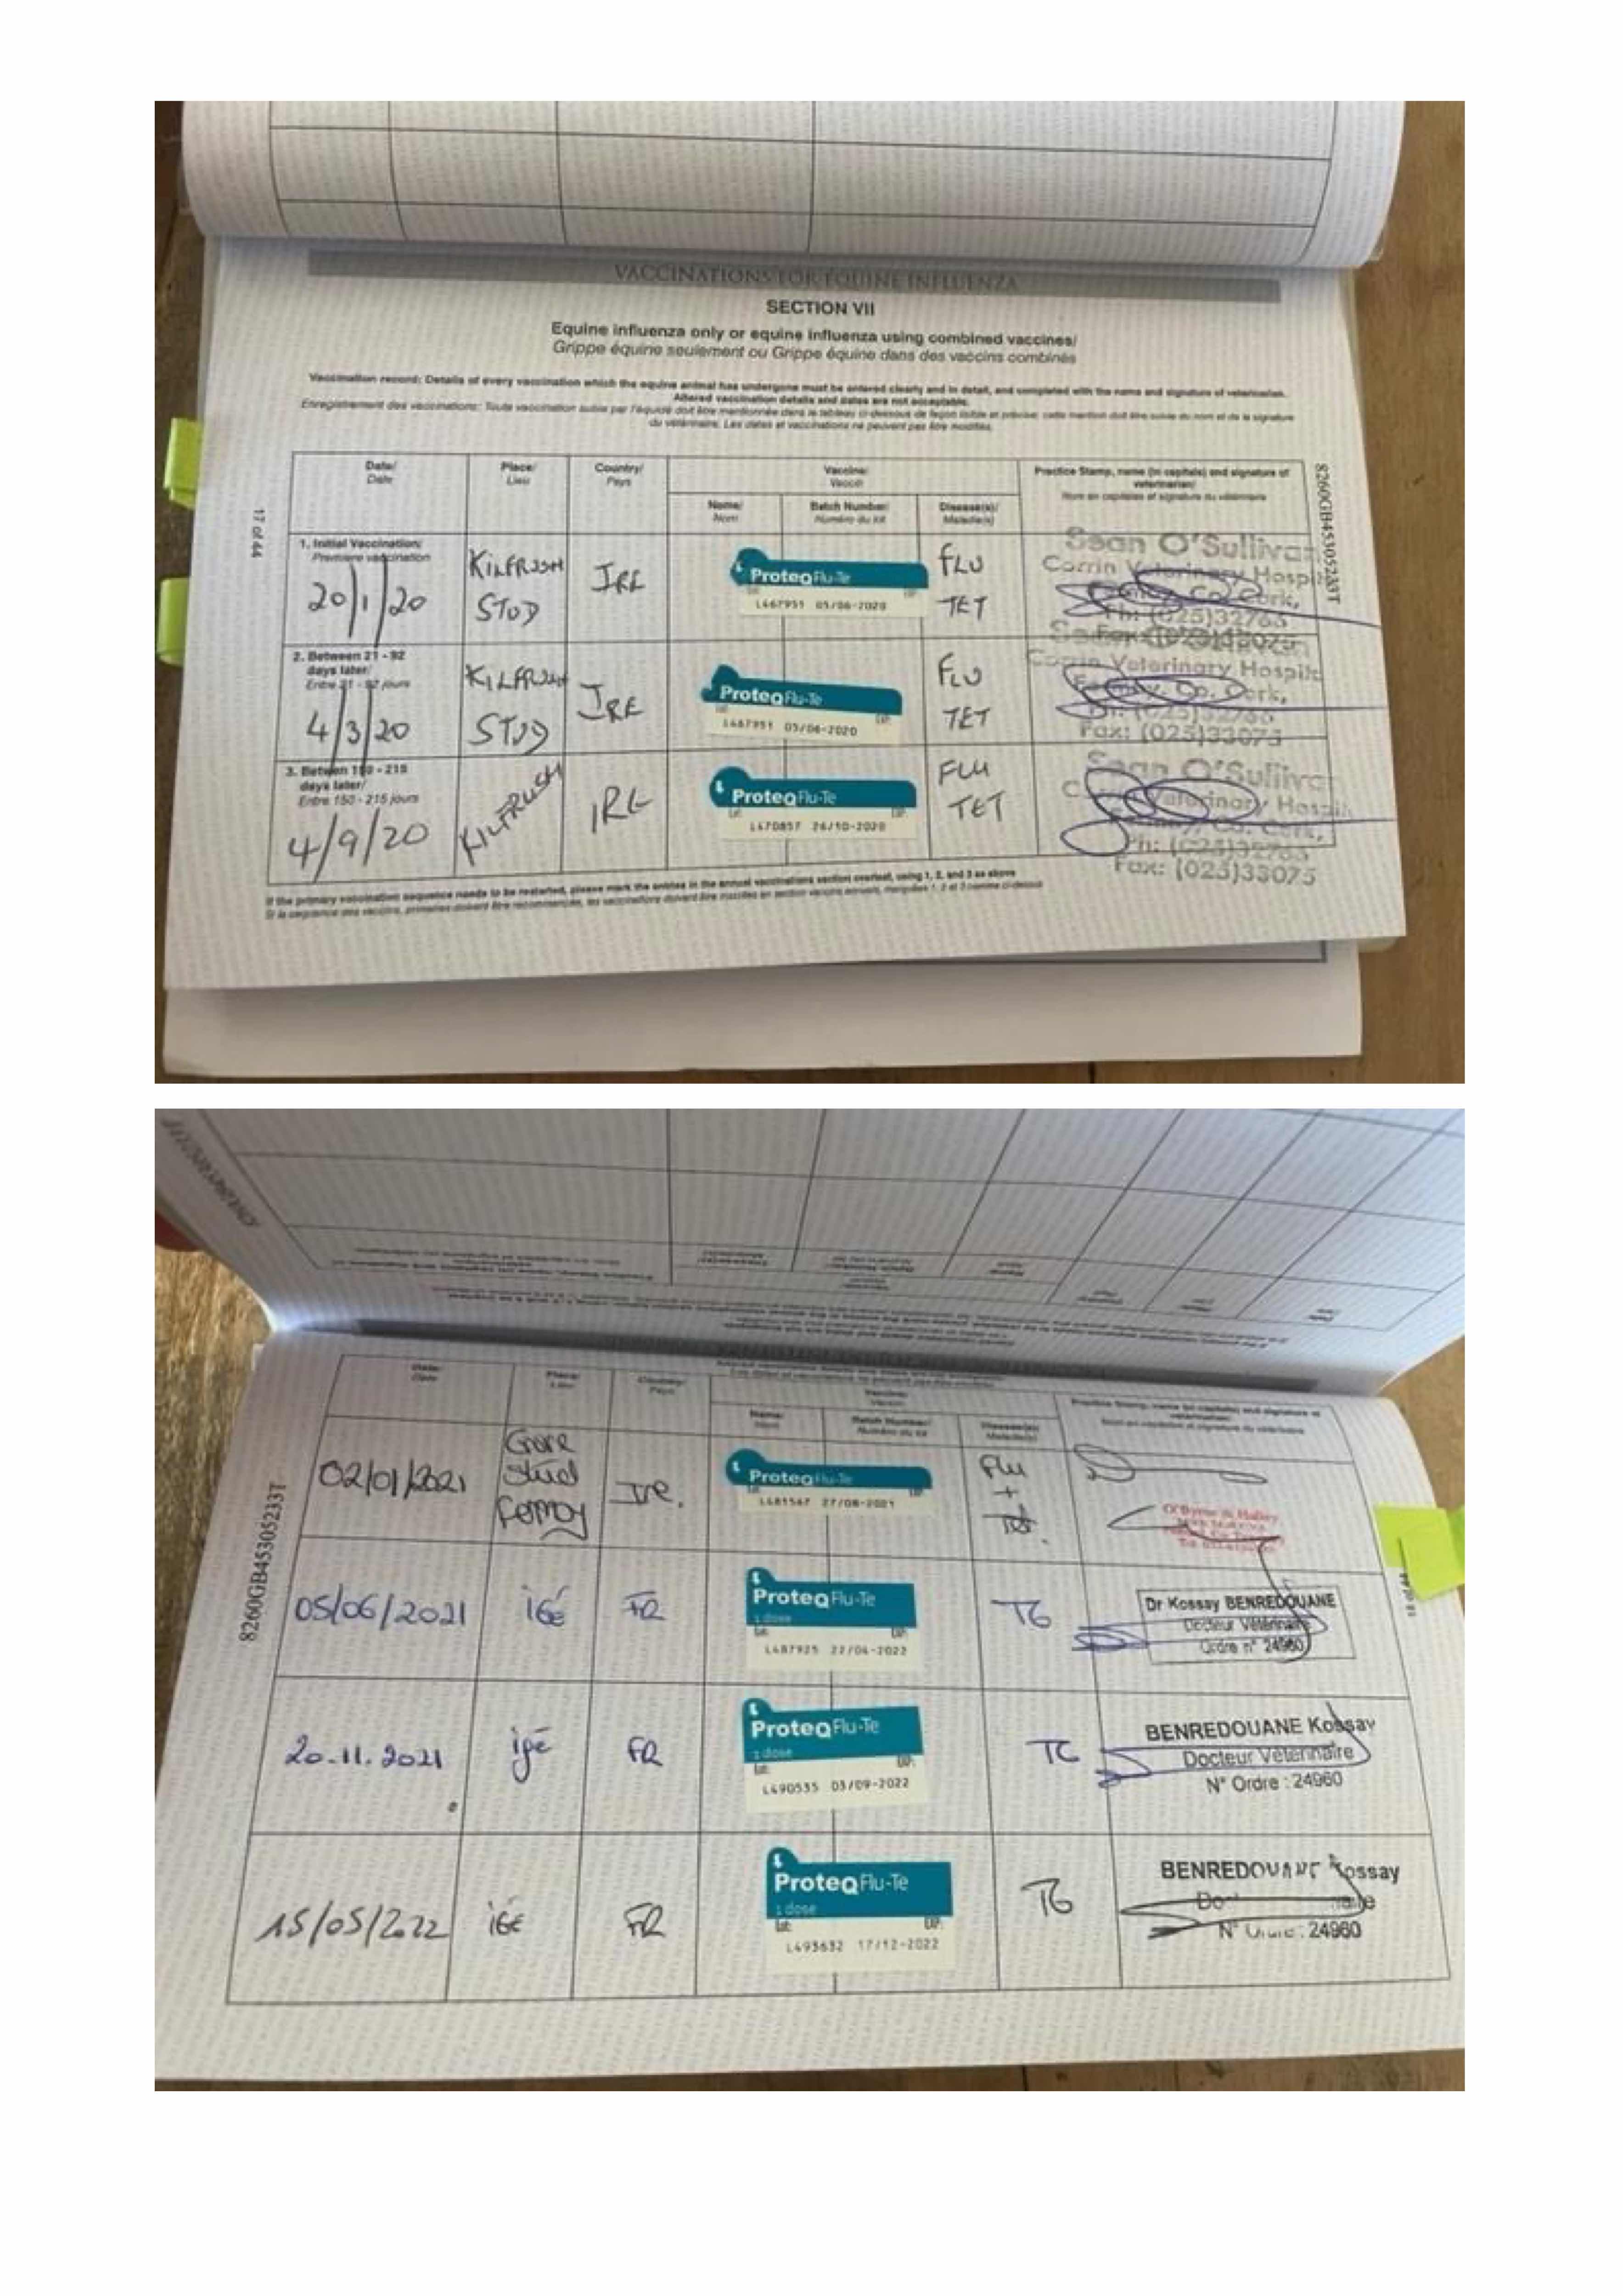 VACCINATIONS FOR EQUINE INFLUENZA
SECTION VII
Equine influenza only or equine influenza using combined vaccines/
Grippe équine seulement ou Grippe équine dans des vaccins combinés
Vaccination record: Details of every vaccination which the equine animal has undergone must be entered clearly and in detail, and completed with the name and signature of veterinarian.
Altered vaccination details and dates are not acceptable.
Enregistrement des vaccinations: Toute vaccination subie par l'équidé doit être mentionnée dans le tableau ci-dessous de façon lisible et précise; cette mention doit être suivie du nom et de la signature
du vétérinaire. Les dates et vaccinations ne peuvent pas être modifiés.
Date/ Place/ Country/ Vaccine/ Practice Stamp, name (in capitals) and signature of
Date Lieu Pays Vaccin veterinarian/
Name/ Batch Number/ Disease(s)/ Nom en capitales et signature du vétérinaire
Nom Numéro du lot Maladie(s)
17 of 44
8260GB45305233T
1. Initial Vaccination:
Premiere vaccination
20/1/20 KILFRUSH STUD IRE
ProteqFlu-Te
L467951 05/06-2020
FLU
TET
Sean O'Sullivan
Corrin Veterinary Hospit
Co. Cork,
Ph: (025)32765
2. Between 21 - 92
days later/
Entre 21 - 92 jours
4/3/20 KILFRUSH STUD IRE
ProteqFlu-Te
L467951 05/06-2020
FLU
TET
Corrin Veterinary Hospit
Fermoy, Co. Cork,
Fax: (025)33075
3. Between 150 - 215
days later/
Entre 150 - 215 jours
4/9/20 KILFRUSH IRE
ProteqFlu-Te
L470857 26/10-2020
FLU
TET
Sean O'Sulliva
Veterinary Hospit
Ph: (025)32765
Fax: (025)33075
If the primary vaccination sequence needs to be restarted, please mark the entries in the annual vaccinations section overleaf, using 1, 2, and 3 as above
Date/ Place/ Country/ Vaccine/
Date Lieu Pays Vaccin
Name/ Batch Number/ Disease(s)/
Nom Numéro du lot Maladie(s)
Practice Stamp, name (in capitals) and signature of
veterinarian/
Nom en capitales et signature du vétérinaire
8260GB45305233T
02/01/2021 Stud Fermoy Ire.
ProteqFlu-Te
L481547 27/08-2021
Flu
+
Tet.
05/06/2021 iGé FR
ProteqFlu-Te
1 dose
Lot: EXP:
L487925 22/04-2022
TG
Dr Kossay BENREDOUANE
Docteur Vétérinaire
Ordre n° 24960
20.11.2021 igé FR
ProteqFlu-Te
1 dose
Lot: EXP:
L490535 03/09-2022
TG
BENREDOUANE Kossay
Docteur Vétérinaire
N° Ordre : 24960
15/05/2022 iGé FR
ProteqFlu-Te
1 dose
Lot: EXP:
L493632 17/12-2022
TG
BENREDOUANE Kossay
N° Ordre : 24960